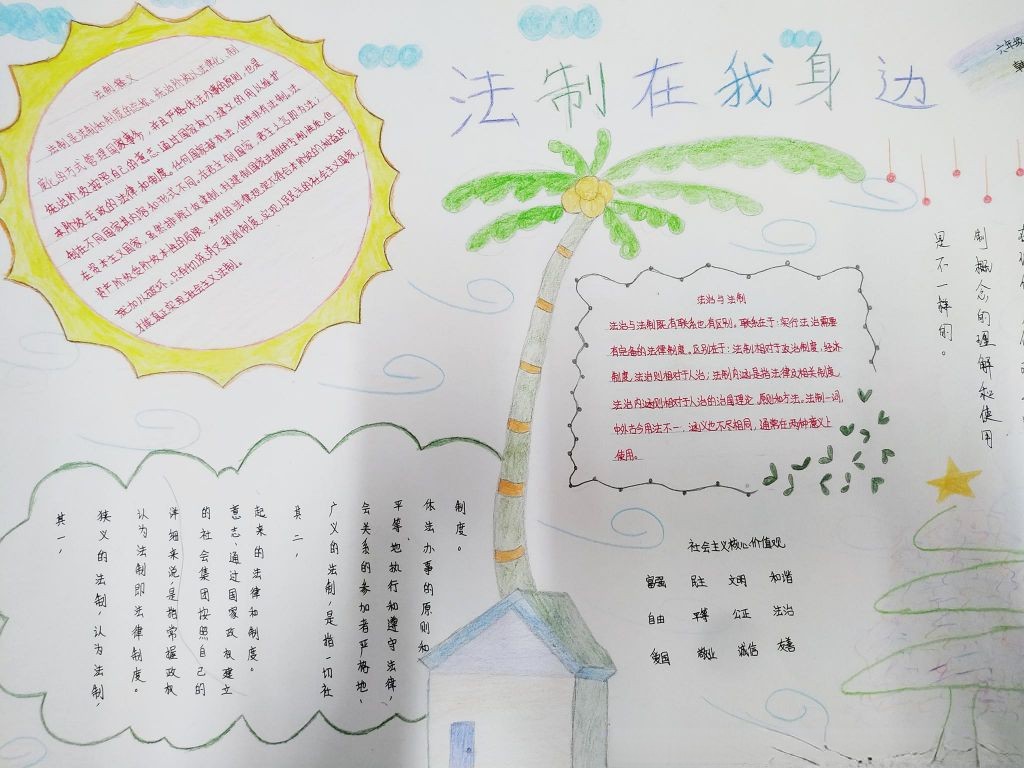 法制在我身边
六年级
法制含义
法制是法制和制度的总称。统治阶级以法律化、制
度化的方式管理国家事务，并且严格依法办事的原则，也是
统治阶级按照自己的意志通过国家权力建立的用以维护
本阶级专政的法律和制度。任何国家都有法，但并非有法制，法
制在不同国家其内容和形式不同。在君主制国家，君主之言即为法；
在资本主义国家，
资产阶级
加以破坏。只有
才能真正实现社会主义法制。
法治与法制
法治与法制既有联系也有区别。联系在于：实行法治需要
有完备的法律制度。区别在于：法制相对于政治制度，经济
制度，法治则相对于人治；法制内涵是指法律及相关制度，
法治内涵则相对于人治的治国理论、原则和方法。法制一词，
中外古今用法不一，涵义也不尽相同，通常在两种意义上
使用。
制概念的理解和使用
是不一样的。
其一，
狭义的法制，认为法制，
认为法制即法律制度。
详细来说，是指掌握政权
的社会集团按照自己的
意志、通过国家政权建立
起来的法律和制度。
其二，
广义的法制，是指一切社
会关系的参加者严格地、
平等地执行和遵守法律，
依法办事的原则和
制度。
社会主义核心价值观
富强 民主 文明 和谐
自由 平等 公正 法治
爱国 敬业 诚信 友善